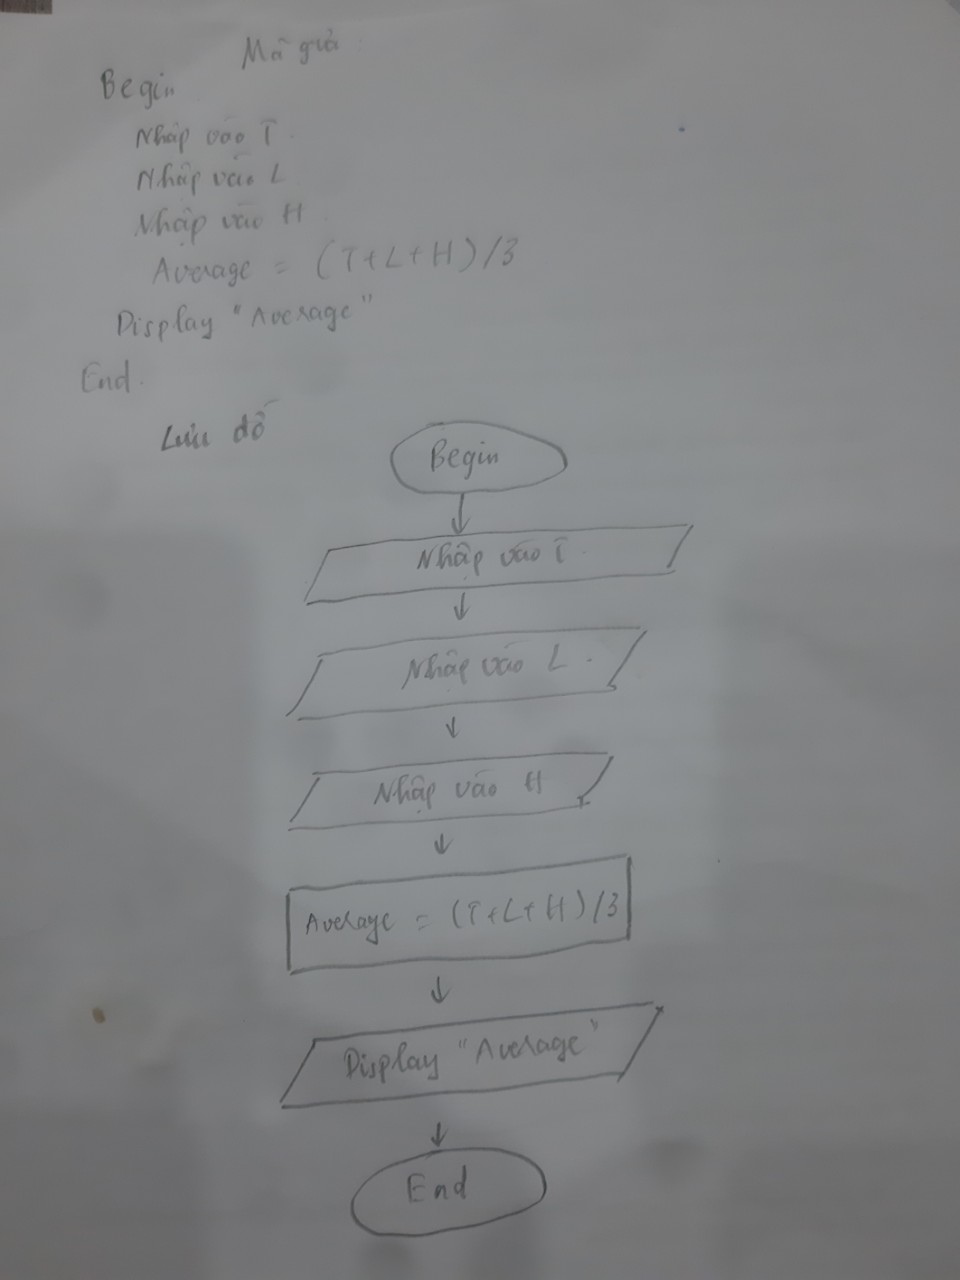 Mã giả
Begin
Nhập vào T
Nhập vào L
Nhập vào H
Average = (T+L+H)/3
Display "Average"
End
Lưu đồ
Begin
Nhập vào T
Nhập vào L
Nhập vào H
Average = (T+L+H)/3
Display "Average"
End